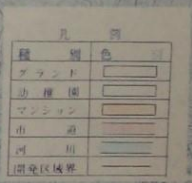 凡 例
種 別 色
グランド
幼稚園
マンション
市 道
河 川
開発区域界